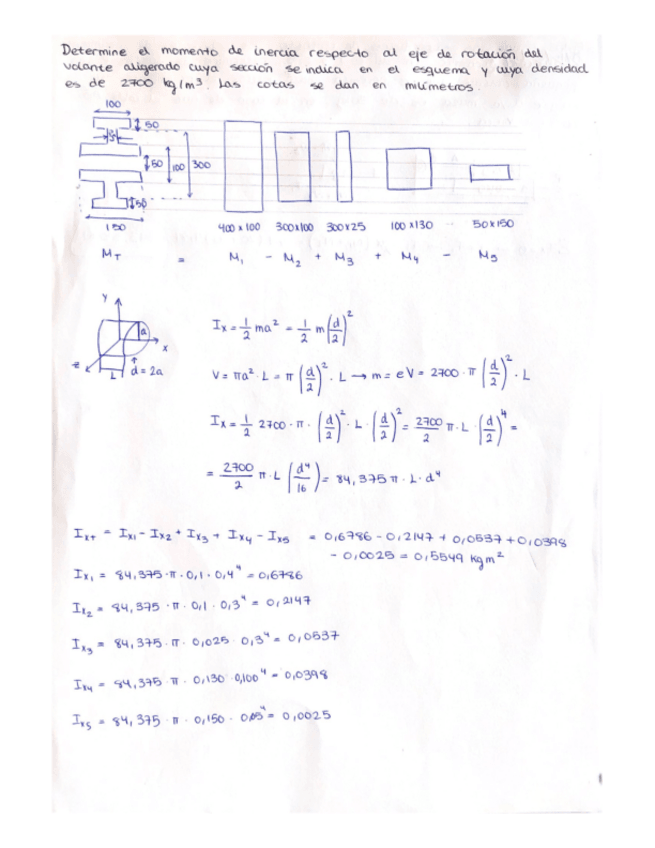 Determine el momento de inercia respecto al eje de rotación del
volante aligerado cuya sección se indica en el esquema y cuya densidad
es de 2700 kg/m³. Las cotas se dan en milímetros.
100
50
50 100 300
50
150
400 x 100 300x100 300x25 100 x130 50x150
M_T = M₁ - M₂ + M₃ + M₄ - M₅
Y
a
x
z
L d = 2a
Ix = 1/2 ma² = 1/2 m(d/2)²
V = πa²·L = π(d/2)²·L → m = ρV = 2700·π(d/2)²·L
Ix = 1/2 2700·π·(d/2)²·L·(d/2)² = 2700/2 π·L·(d/2)⁴ =
= 2700/2 π·L(d⁴/16) = 84,375 π·L·d⁴
Ix_T = Ix₁ - Ix₂ + Ix₃ + Ix₄ - Ix₅ = 0,6786 - 0,2147 + 0,0537 + 0,0398
- 0,0025 = 0,5549 kg m²
Ix₁ = 84,375·π·0,1·0,4⁴ = 0,6786
Ix₂ = 84,375·π·0,1·0,3⁴ = 0,2147
Ix₃ = 84,375·π·0,025·0,3⁴ = 0,0537
Ix₄ = 84,375·π·0,130·0,100⁴ = 0,0398
Ix₅ = 84,375·π·0,150·0,05⁴ = 0,0025